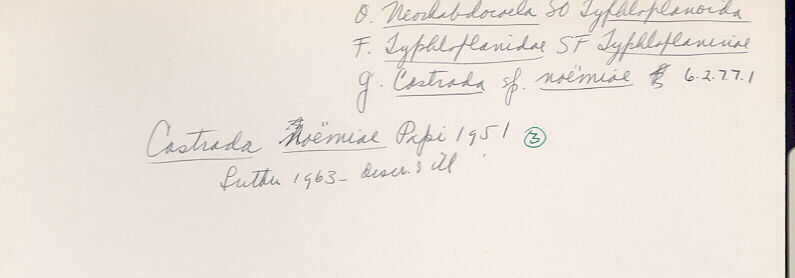 O. Neorhabdocoela SO Typhloplanoida
F. Typhloplanidae SF Typhloplaninae
g. Castrada sp. noëmiae 6.2.77.1
Castrada noëmiae Papi 1951 3
Luther 1963 - Descr. & ill